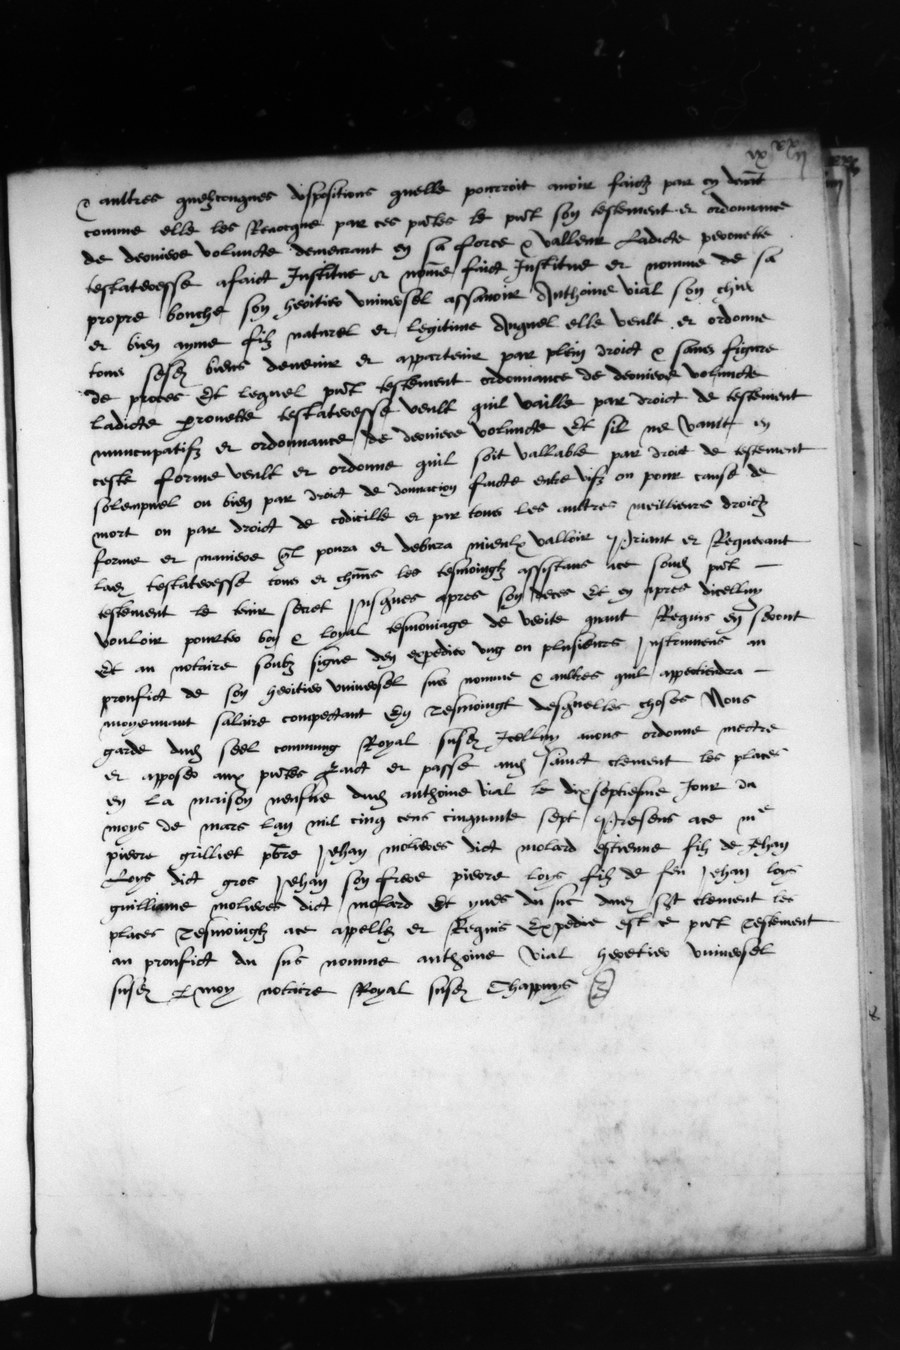 & aultres quelzcongues dispositions quelle pourroit avoir faictz par cy devāt
comme elle les Revocque par ces pūtes le pūt son testement et ordonnance
de derniere volunte demeurant en sa force & valleur Ladicte peronette
testateresse a faict Institue et nōme faict Institue et nomme de sa
propre bouche son heritier universel assavoir Anthoine vial son chier
et bien ayme filz naturel et legitime Auquel elle veult et ordonne
tous sesd biens devenir et appartenir par plein droict & sans figure
de proces Et lequel pūt testement ordonnance de derniere volunte
ladicte peronette testateresse veult quil vaille par droict de testement
nuncupatifz et ordonnance de derniere volunte Et sil ne vault en
ceste forme veult et ordonne quil soit vallable par droit de testement
solempnel ou bien par droict de donnacion faicte entre vifz ou pour cause de
mort ou par droict de codicille et par tous les aultres meillieurs droictz
forme et maniere ql poura et debvra mieulx valloir Priant et Requerant
lad testateresse tous et chūns les tesmoingtz assistans ace soubz pūt
testement le tenir secret Jusques apres son deces Et en apres dicelluy
vouloir pourter bon & loyal tesmoniage de verite quant Requis en seront
Et au notaire soubz signe den expedier ung ou plusieurs Instrumens au
prouffict de son heritier universel sus nomme & aultres quil appertiendra
moyennant salaire competant En Tesmoingt desquelles choses Nous
garde dud seel commung Royal susd Icelluy avons ordonne mectre
et apposer aux pūtes Faict et passe aud sainct clement les places
en la maison neufve dud anthoine vial le dixseptiesme Jour du
moys de mars lan mil cinq cens cinquante sept Presens ace mᵉ
pierre grilliet pbre Jehan molieres dict molard estienne filz de Jehan
Loys dict gros Jehan son frere pierre loys filz de feu Jehan loys
guilliaume molieres dict molard Et yves du suc dud sct clement les
places Tesmoingtz ace appellez et Requis Expedie est ce pūt Testement
au prouffict du sus nomme anthoine vial heretier universel
susd P moy notaire Royal susd Chappuys